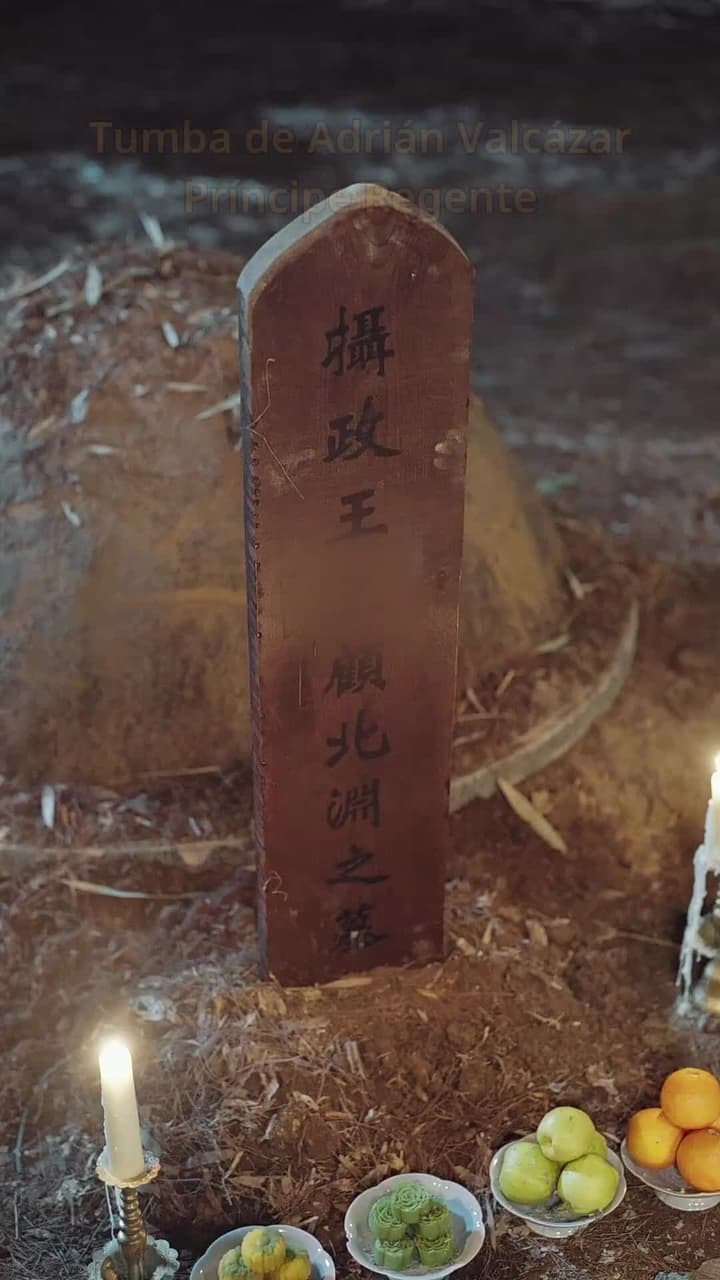 Tumba de Adrián Valcázar
Príncipe Regente
攝政王 顧北淵之墓